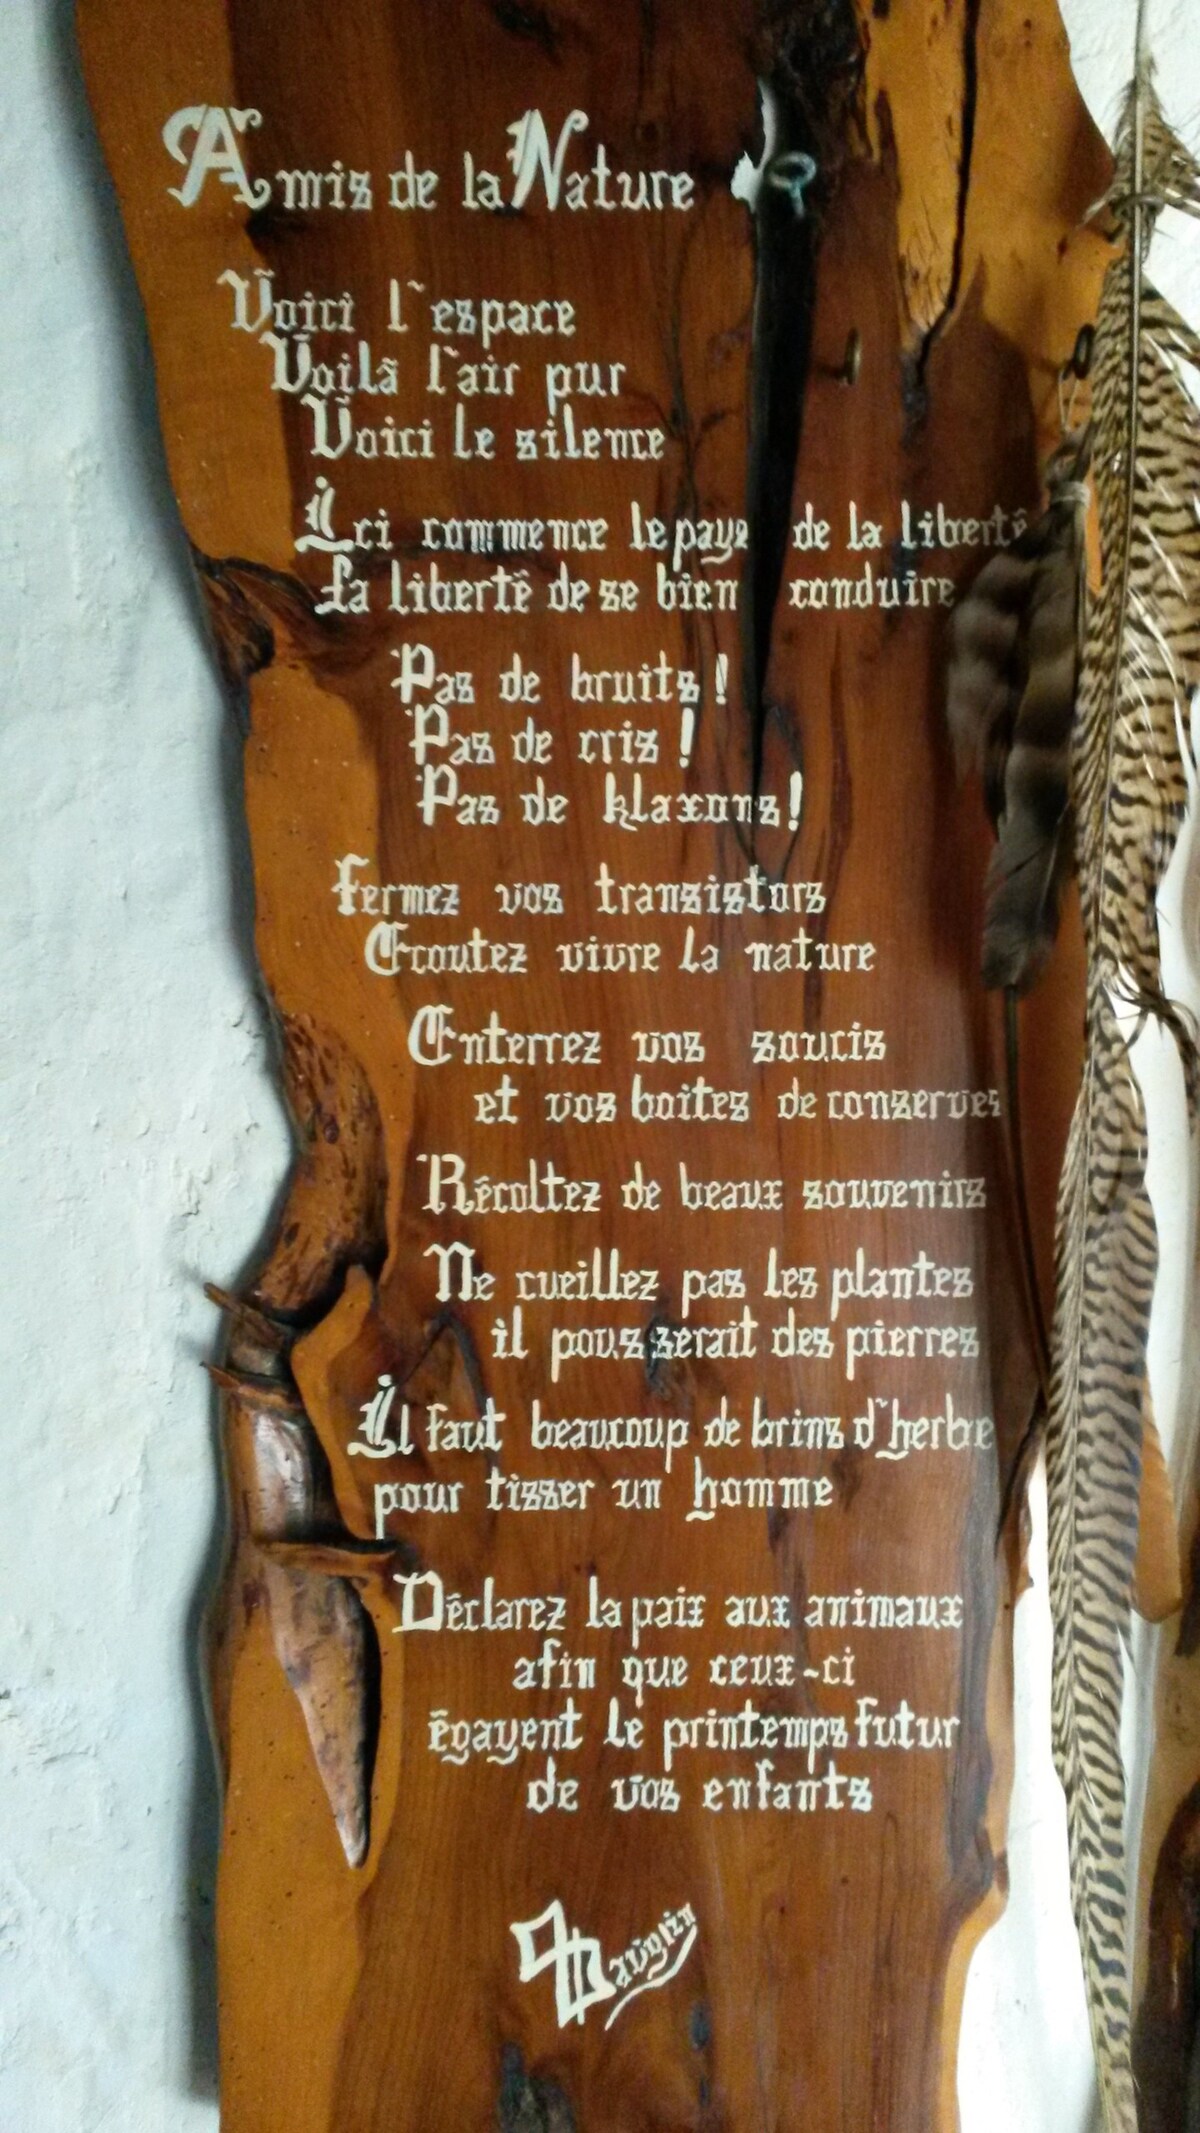 Amis de la Nature
Voici l'espace
Voilà l'air pur
Voici le silence
Ici commence le pays de la liberté
La liberté de se bien conduire
Pas de bruits !
Pas de cris !
Pas de klaxons !
Fermez vos transistors
Ecoutez vivre la nature
Enterrez vos soucis
et vos boites de conserves
Récoltez de beaux souvenirs
Ne cueillez pas les plantes
il pousserait des pierres
Il faut beaucoup de brins d'herbe
pour tisser un homme
Déclarez la paix aux animaux
afin que ceux-ci
égayent le printemps futur
de vos enfants